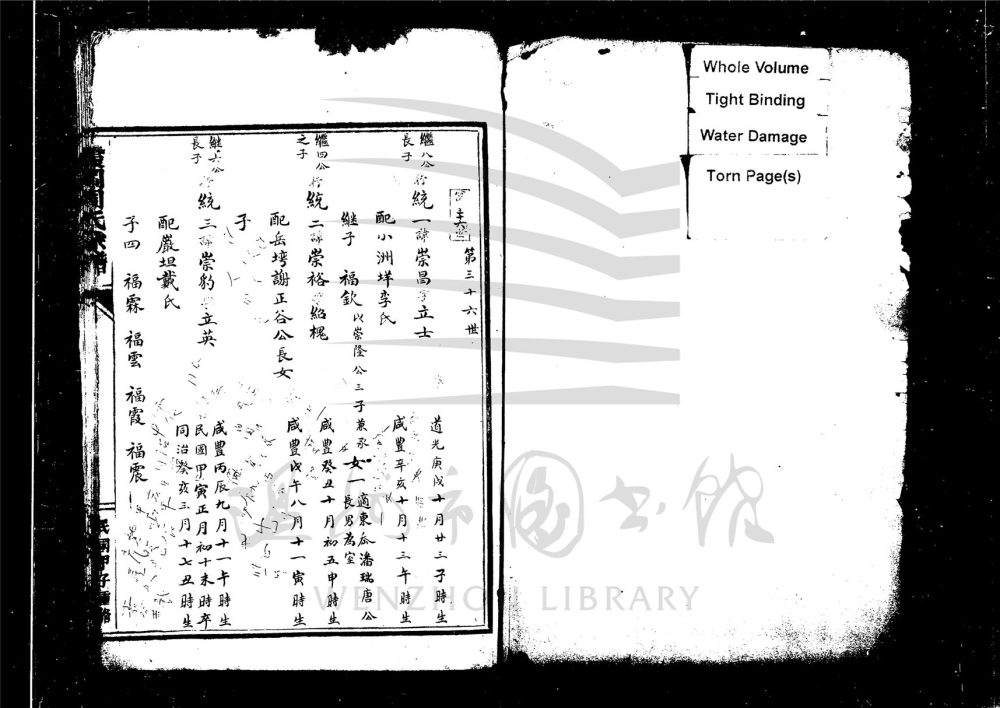 第三十六世
繼八公
長子
行統一諱崇昌字立士
道光庚戌十月廿三子時生
配小洲垟李氏
咸豐辛亥十月十三午時生
継子 福欽 以崇隆公三子兼承 女一 適東瓜潘瑞唐公
長男為室
繼四公
之子
行統二諱崇裕字紹槐
咸豐癸丑十月初五申時生
配岳垮謝正谷公長女
咸豐戊午八月十一寅時生
子
継六公
長子
行統三諱崇豹字立英
咸豐丙辰九月十一午時生
民國甲寅正月初十未時卒
配巖坦戴氏
同治癸亥三月十七丑時生
子四 福霖 福雲 福霞 福震
Whole Volume
Tight Binding
Water Damage
Torn Page(s)
温州市圖书館
WENZHOU LIBRARY